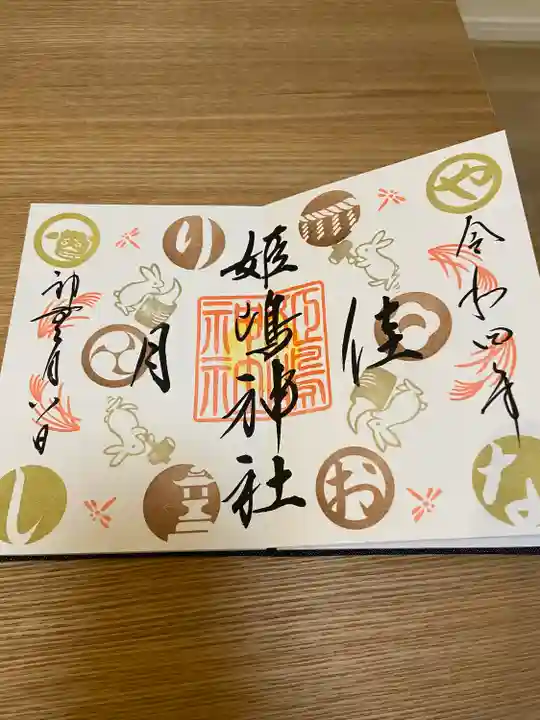 令和四年
佳月
姫嶋神社
姫嶋神社
神無月八日
や
り
な
お
し